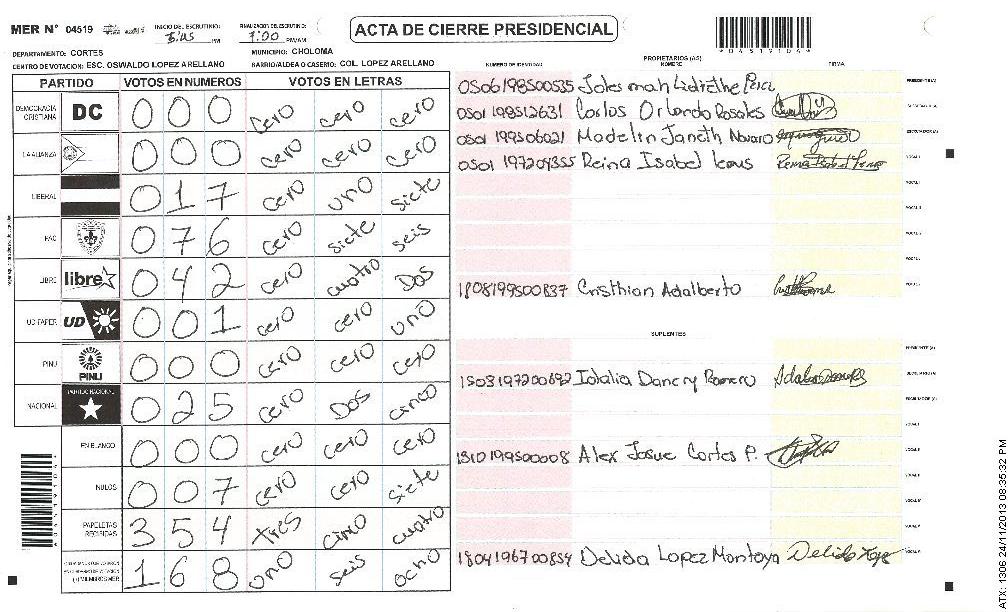 MER N° 04519
INICIO DEL ESCRUTINIO:
5:05 PM
FINALIZACION DE ESCRUTINIO:
7:00 PM/AM
ACTA DE CIERRE PRESIDENCIAL
DEPARTAMENTO: CORTES
MUNICIPIO: CHOLOMA
CENTRO DE VOTACION: ESC. OSWALDO LOPEZ ARELLANO
BARRIO/ALDEA O CASERIO: COL. LOPEZ ARELLANO
PARTIDO VOTOS EN NUMEROS VOTOS EN LETRAS
DEMOCRACIA CRISTIANA DC 0 0 0 cero cero cero
LA ALIANZA 0 0 0 cero cero cero
LIBERAL 0 1 7 cero uno siete
PAC 0 7 6 cero siete seis
LIBRE libre 0 4 2 cero cuatro Dos
UD-FAPER UD 0 0 1 cero cero uno
PINU PINU 0 0 0 cero cero cero
NACIONAL PARTIDO NACIONAL 0 2 5 cero Dos cinco
EN BLANCO 0 0 0 cero cero cero
NULOS 0 0 7 cero cero siete
PAPELETAS RECIBIDAS 3 5 4 tres cinco cuatro
1 6 8 uno seis ocho
NUMERO DE IDENTIDAD
PROPIETARIOS (AS)
NOMBRE
FIRMA
0506198500535
0501198512631 Carlos Orlando Rosales
0501199506021 Madelin Janeth
Reina Isabel
1808199500837 Cristhian Adalberto
SUPLENTES
1503197200692 Idalia Romero
1810199500008 Alex Josue Cortes P.
1804196700854 Delida Lopez Montoya
ATX: 1306 24/11/2013 08:35:32 PM